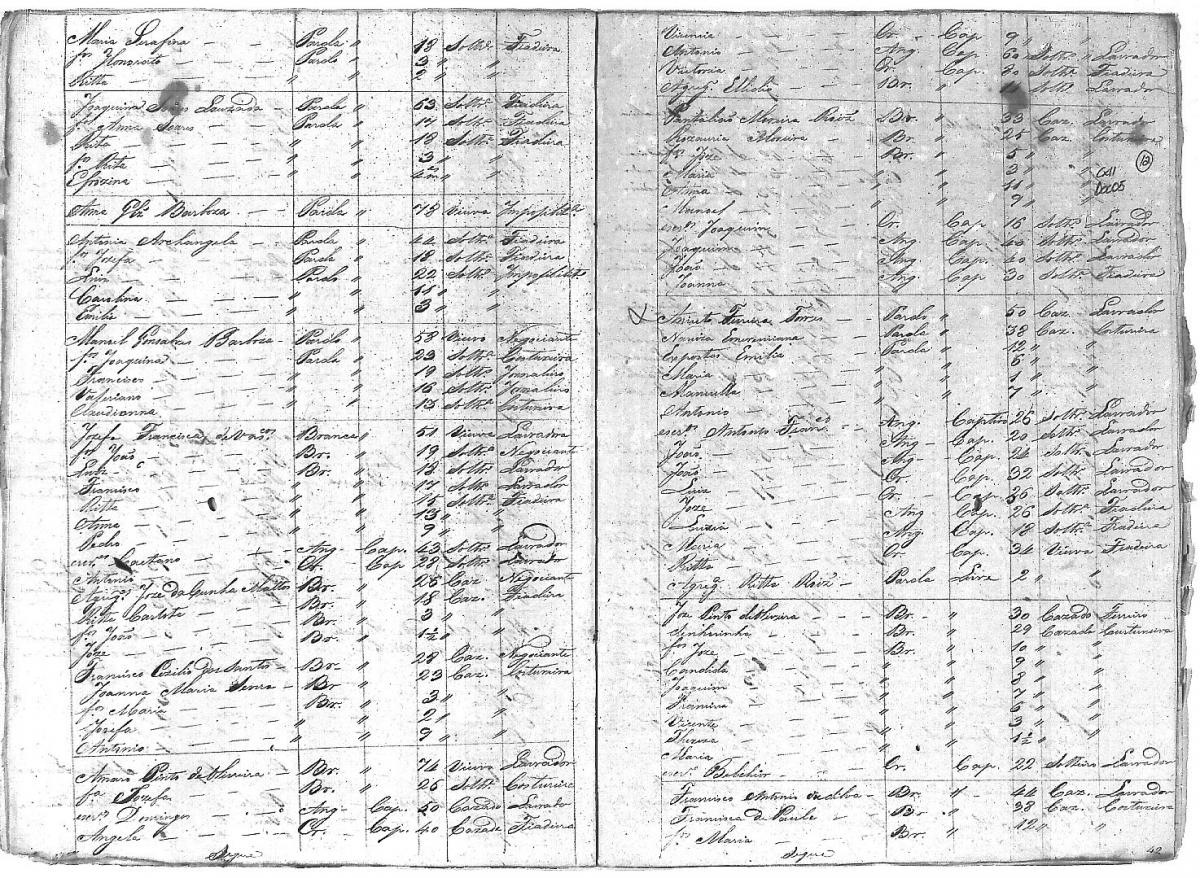 Maria Serafina Parda " 18 Solth.ª Fiadeira
f.os Honorato Pardo " 3 " "
Ritta " 2 " "
Joaquina Louzada Parda " 53 Solth.ª Fiadeira
f.ª Anna Parda " 17 Solth.ª Fiadeira
Rita " " 18 Solth.ª Fiadeira
f.os Rita " " 3 " "
Efrizina " "
Anna Glz Barboza Parda " 78 Viuva
Antonia Archangela Parda " 44 Solth.ª Fiadeira
f.os Jozefa Parda " 18 Solth.ª Fiadeira
Luiz Pardo " 22 Solth.º
Carolina " " 11 " "
Emilia " " 3 " "
Manoel Gonsalves Barboza Pardo " 58 Viuvo Negociante
f.os Joaquina Parda " 23 Solth.ª Costureira
Francisco " " 19 Solth.º Jornaleiro
Valeriano " " 16 Solth.º Jornaleiro
Claudianna " " 13 Solth.ª Costureira
Jozefa Francisca de Vas.cos Branca " 51 Viuva Lavradora
f.os João Br. " 19 Solth.º Negociante
Luiz Br. " 18 Solth.º Lavrador
Francisco " " 17 Solth.º Lavrador
Ritta " " 15 Solth.ª Fiadeira
Anna " " 13 " "
Pedro " " 9 " "
escr.os Caetano Ang Cap. 43 Solth.º Lavrador
Antonio Cr. Cap 28 Solth.º Lavrador
Agreg.os Joze da Cunha Mattos Br. " 26 Caz Negociante
Ritta Br. " 18 Caz. Fiadeira
f.os João Br. " 3 " "
Joze Br. " 1½ " "
Francisco dos Santos Br. " 28 Caz. Negociante
Joanna Maria Br " 23 Caz. Costureira
f.os Maria Br. " 3 " "
Jozefa " " 2 " "
Antonio " " 9 " "
Amaro Pinto de Oliveira Br. " 74 Viuvo Lavrador
f.ª Jozefa Br. " 26 Solth.ª Costureira
escr.os Domingos Ang Cap. 50 Cazado Lavrador
Angela Cr. Cap. 40 Cazada Fiadeira
Segue
Vicencia Cr. Cap 9 " "
Antonio Ang Cap 60 Solth.º Lavrador
Victoria Cr. Cap. 30 Solth.ª Fiadeira
Agreg. Br. " Solth. Lavrador
Pantaleão Moreira Roiz Br. " 33 Caz. Lavrador
Rozaura Moreira Br. " 25 Caz Costureira
f.os Joze Br. " 5 " "
Maria " " 3 " "
" " 11 " "
Manoel " " 9 " "
escr.os Joaquim Cr. Cap 16 Solth.º Lavrador
Joaquim Ang Cap. 40 Solth.º Lavrador
João Ang Cap. 40 Solth.º Lavrador
Joanna Ang Cap 30 Solth.ª Fiadeira
Aniceto Ferreira Torres Pardo " 50 Caz. Lavrador
Emerenciana Parda " 38 Caz. Costureira
Expostos Emilia Parda " 12 " "
Maria " " 6 " "
Manoella " " 1 " "
Antonio " " 7 " "
escr.os Antonio Fran.co Ang. Captivo 26 Solth.º Lavrador
João Ang Cap. 20 Solth.º Lavrador
João Ang Cap. 24 Solth.º Lavrador
Luiz Cr. Cap. 32 Solth.º Lavrador
Joze Cr. Cap. 36 Solth.º Lavrador
Luzia Ang Cap. 26 Solth.ª Fiadeira
Maria Ang. Cap. 18 Solth.ª Fiadeira
Ritta Cr. Cap. 34 Viuva Fiadeira
Agreg. Ritta Roiz Parda Livre 2 " "
Joze Pinto de Oliveira Br. " 30 Cazado Ferreiro
Senhorinha Br. " 29 Cazada Costureira
f.os Joze Br. " 10 " "
Candida " " 9 " "
Joaquim " " 8 " "
" " 7 " "
Vicente " " 6 " "
Thereza " " 3 " "
Maria " " 1½ " "
escr.º Cr. Cap. 22 Solteiro Lavrador
Francisco Antonio da Silva Br. " 44 Caz. Lavrador
Francisca de Paula Br " 38 Caz. Costureira
f.os Maria Br. " 12 " "
Segue
42